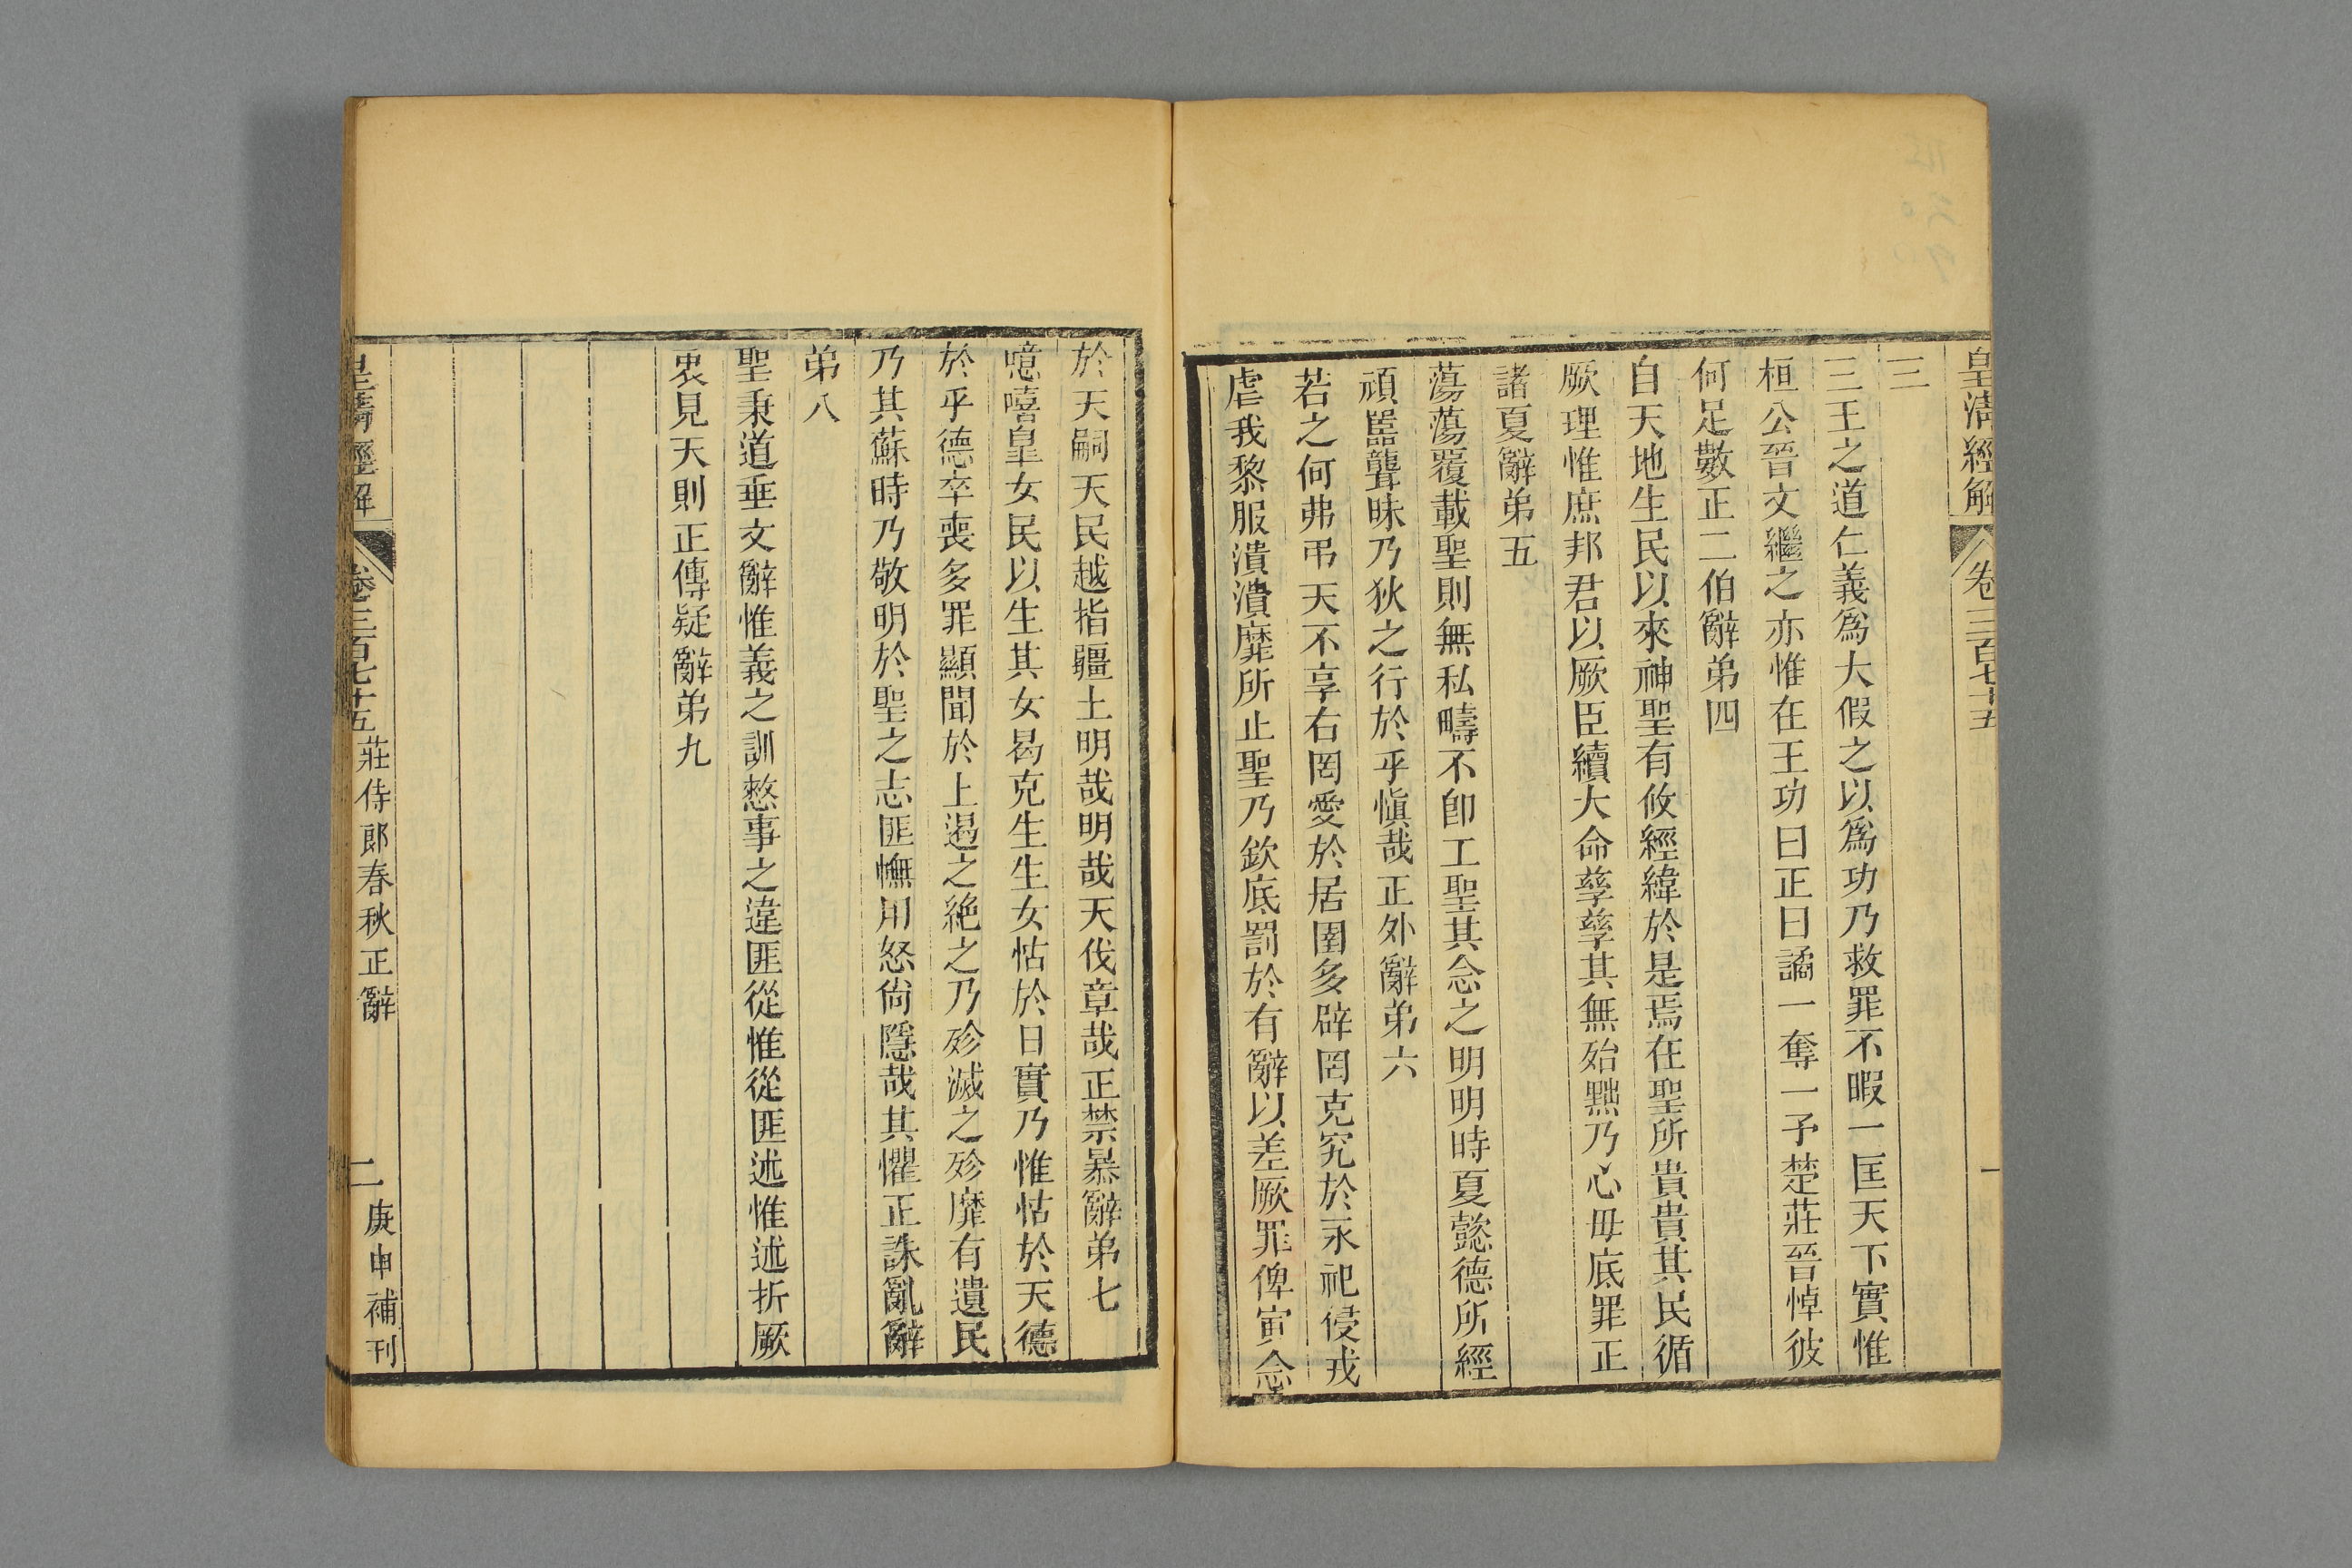 皇清經解
卷三百七十五
一
三
三王之道仁義爲大假之以爲功乃救罪不暇一匡天下實惟
桓公晉文繼之亦惟在王功曰正曰譎一奪一予楚莊晉悼彼
何足數正二伯辭弟四
自天地生民以來神聖有攸經緯於是焉在聖所貴貴其民循
厥理惟庶邦君以厥臣續大命孳孳其無始黜乃心毋底罪正
諸夏辭弟五
蕩蕩覆載聖則無私疇不卽工聖其念之明明時夏懿德所經
頑嚚聾昧乃狄之行於乎愼哉正外辭弟六
若之何弗弔天不享右罔愛於居圉多辟罔克究於永祀侵戎
虐我黎服潰潰靡所止聖乃欽底罰於有辭以差厥罪俾寅念
於天嗣天民越指疆土明哉明哉天伐章哉正禁暴辭弟七
噫嘻皇女民以生其女曷克生生女怙於日實乃惟怙於天德
於乎德卒喪多罪顯聞於上遏之絶之乃殄滅之殄靡有遺民
乃其蘇時乃敬明於聖之志匪憮用怒尙隱哉其懼正誅亂辭
弟八
聖秉道垂文辭惟義之訓憗事之違匪從惟從匪述惟述折厥
衷見天則正傳疑辭弟九
皇清經解
卷三百七十五
莊侍郞春秋正辭
二
庚申補刊